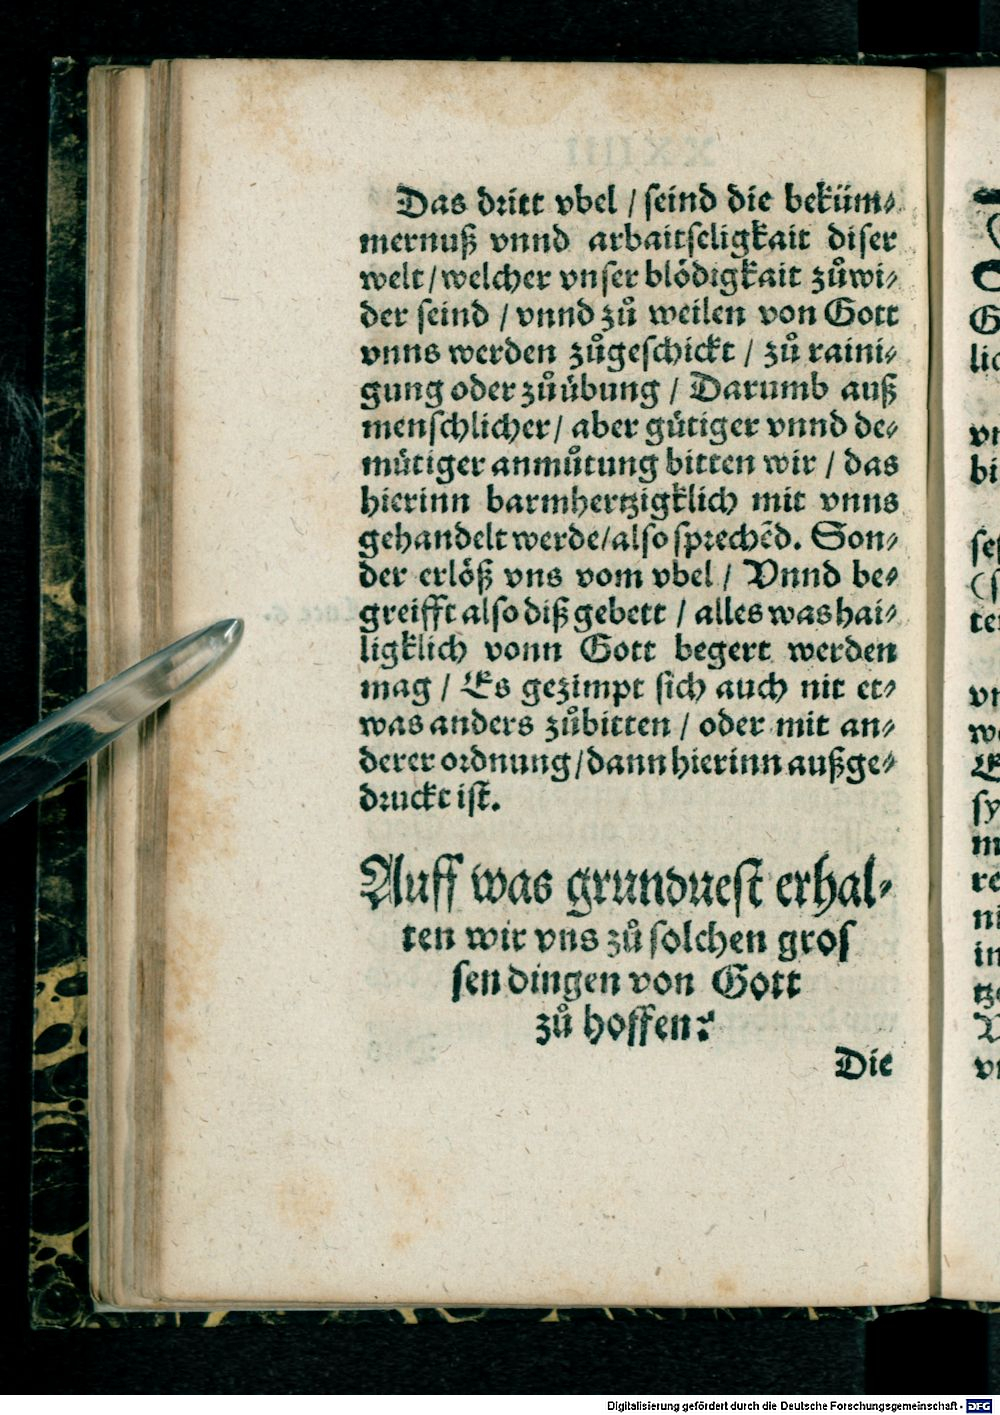 Das dritt vbel / seind die beküm⸗
mernuß vnnd arbaitseligkait diser
welt / welcher vnser blödigkait zůwi⸗
der seind / vnnd zů weilen von Gott
vnns werden zůgeschickt / zů raini⸗
gung oder zůübung / Darumb auß
menschlicher / aber gütiger vnnd de⸗
mütiger anmůtung bitten wir / das
hierinn barmhertzigklich mit vnns
gehandelt werde / also sprechẽd. Son⸗
der erlöß vns vom vbel / Vnnd be⸗
greifft also diß gebett / alles was hai⸗
ligklich vonn Gott begert werden
mag / Es gezimpt sich auch nit et⸗
was anders zůbitten / oder mit an⸗
derer ordnung / dann hierinn außge⸗
druckt ist.
Auff was grunduest erhal⸗
ten wir vns zů solchen gros
sen dingen von Gott
zů hoffen?
Die
Digitalisierung gefördert durch die Deutsche Forschungsgemeinschaft - DFG